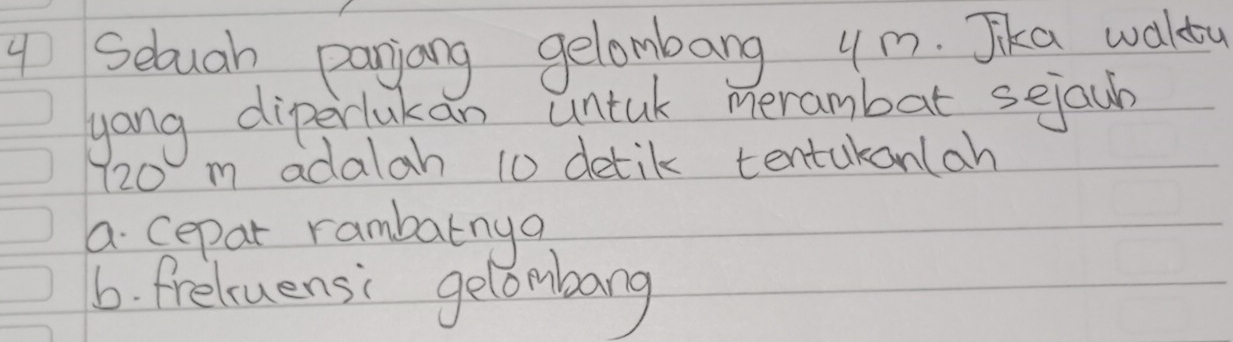 4 Sebuah panjang gelombang 4 m. Jika waktu
yang diperlukan untuk merambat sejauh
420 m adalah 10 detik tentukanlah
a. cepat rambatnya
b. frekuensi gelombang